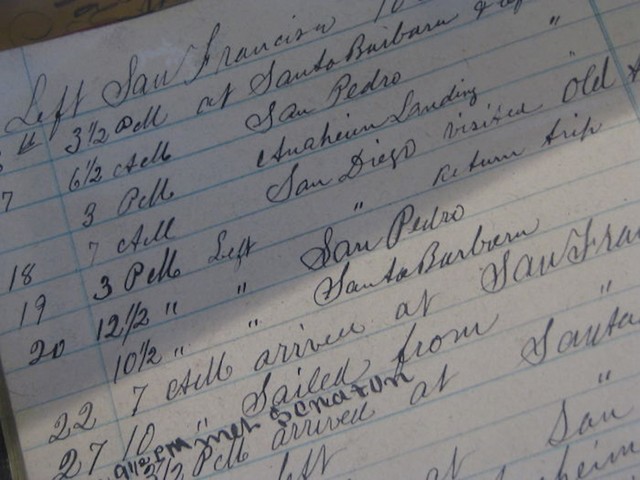 Left San Francisco 10
" 3 1/2 PM at Santa Barbara "
6 1/2 AM San Pedro "
7 3 PM Anaheim Landing
7 AM San Diego visited Old
18 3 PM Left " return trip
19 12 1/2 " " San Pedro
20 10 1/2 " " Santa Barbara
22 7 AM arrived at San Fran
27 10 " Sailed from "
9 1/2 PM met Senator
3 1/2 PM arrived at Santa
left "
at San